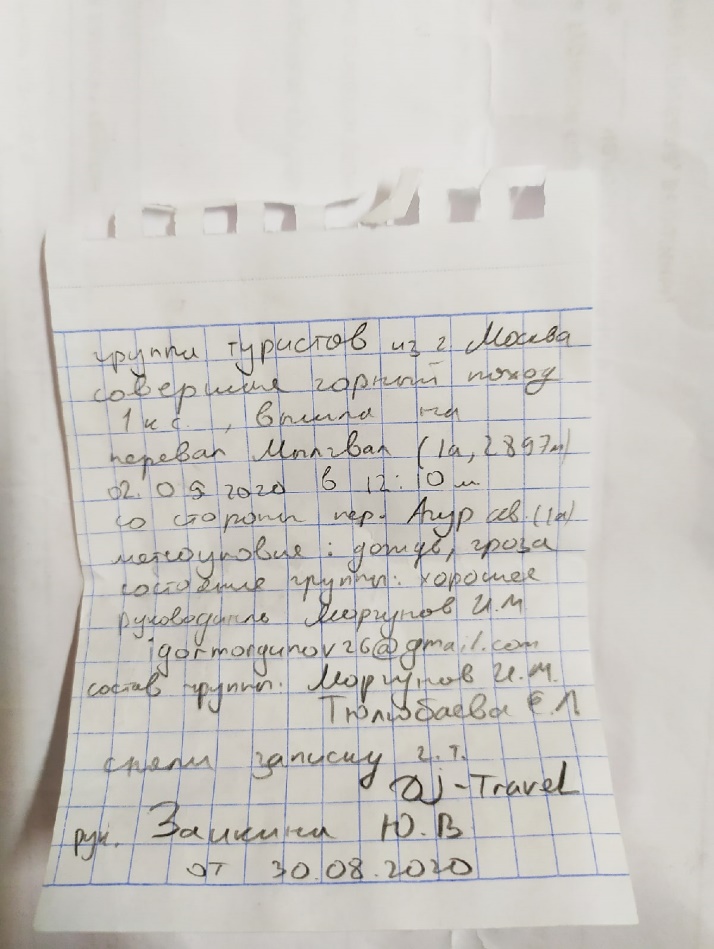 группа туристов из г. Москва
совершая горный поход
1 к.с., вышла на
перевал Мылгвал (1а, 2897м)
02.09 2020 в 12:10 м
со стороны пер. Агур сев. (1а)
метеоусловия: дождь, гроза
состояние группы: хорошее
руководитель Моргунов И.М
igormorgunov26@gmail.com
состав группы: Моргунов И.М.
Тюлюбаева Е.Л
сняли записку г.т.
-Travel
рук. Заикина Ю.В
от 30.08.2020